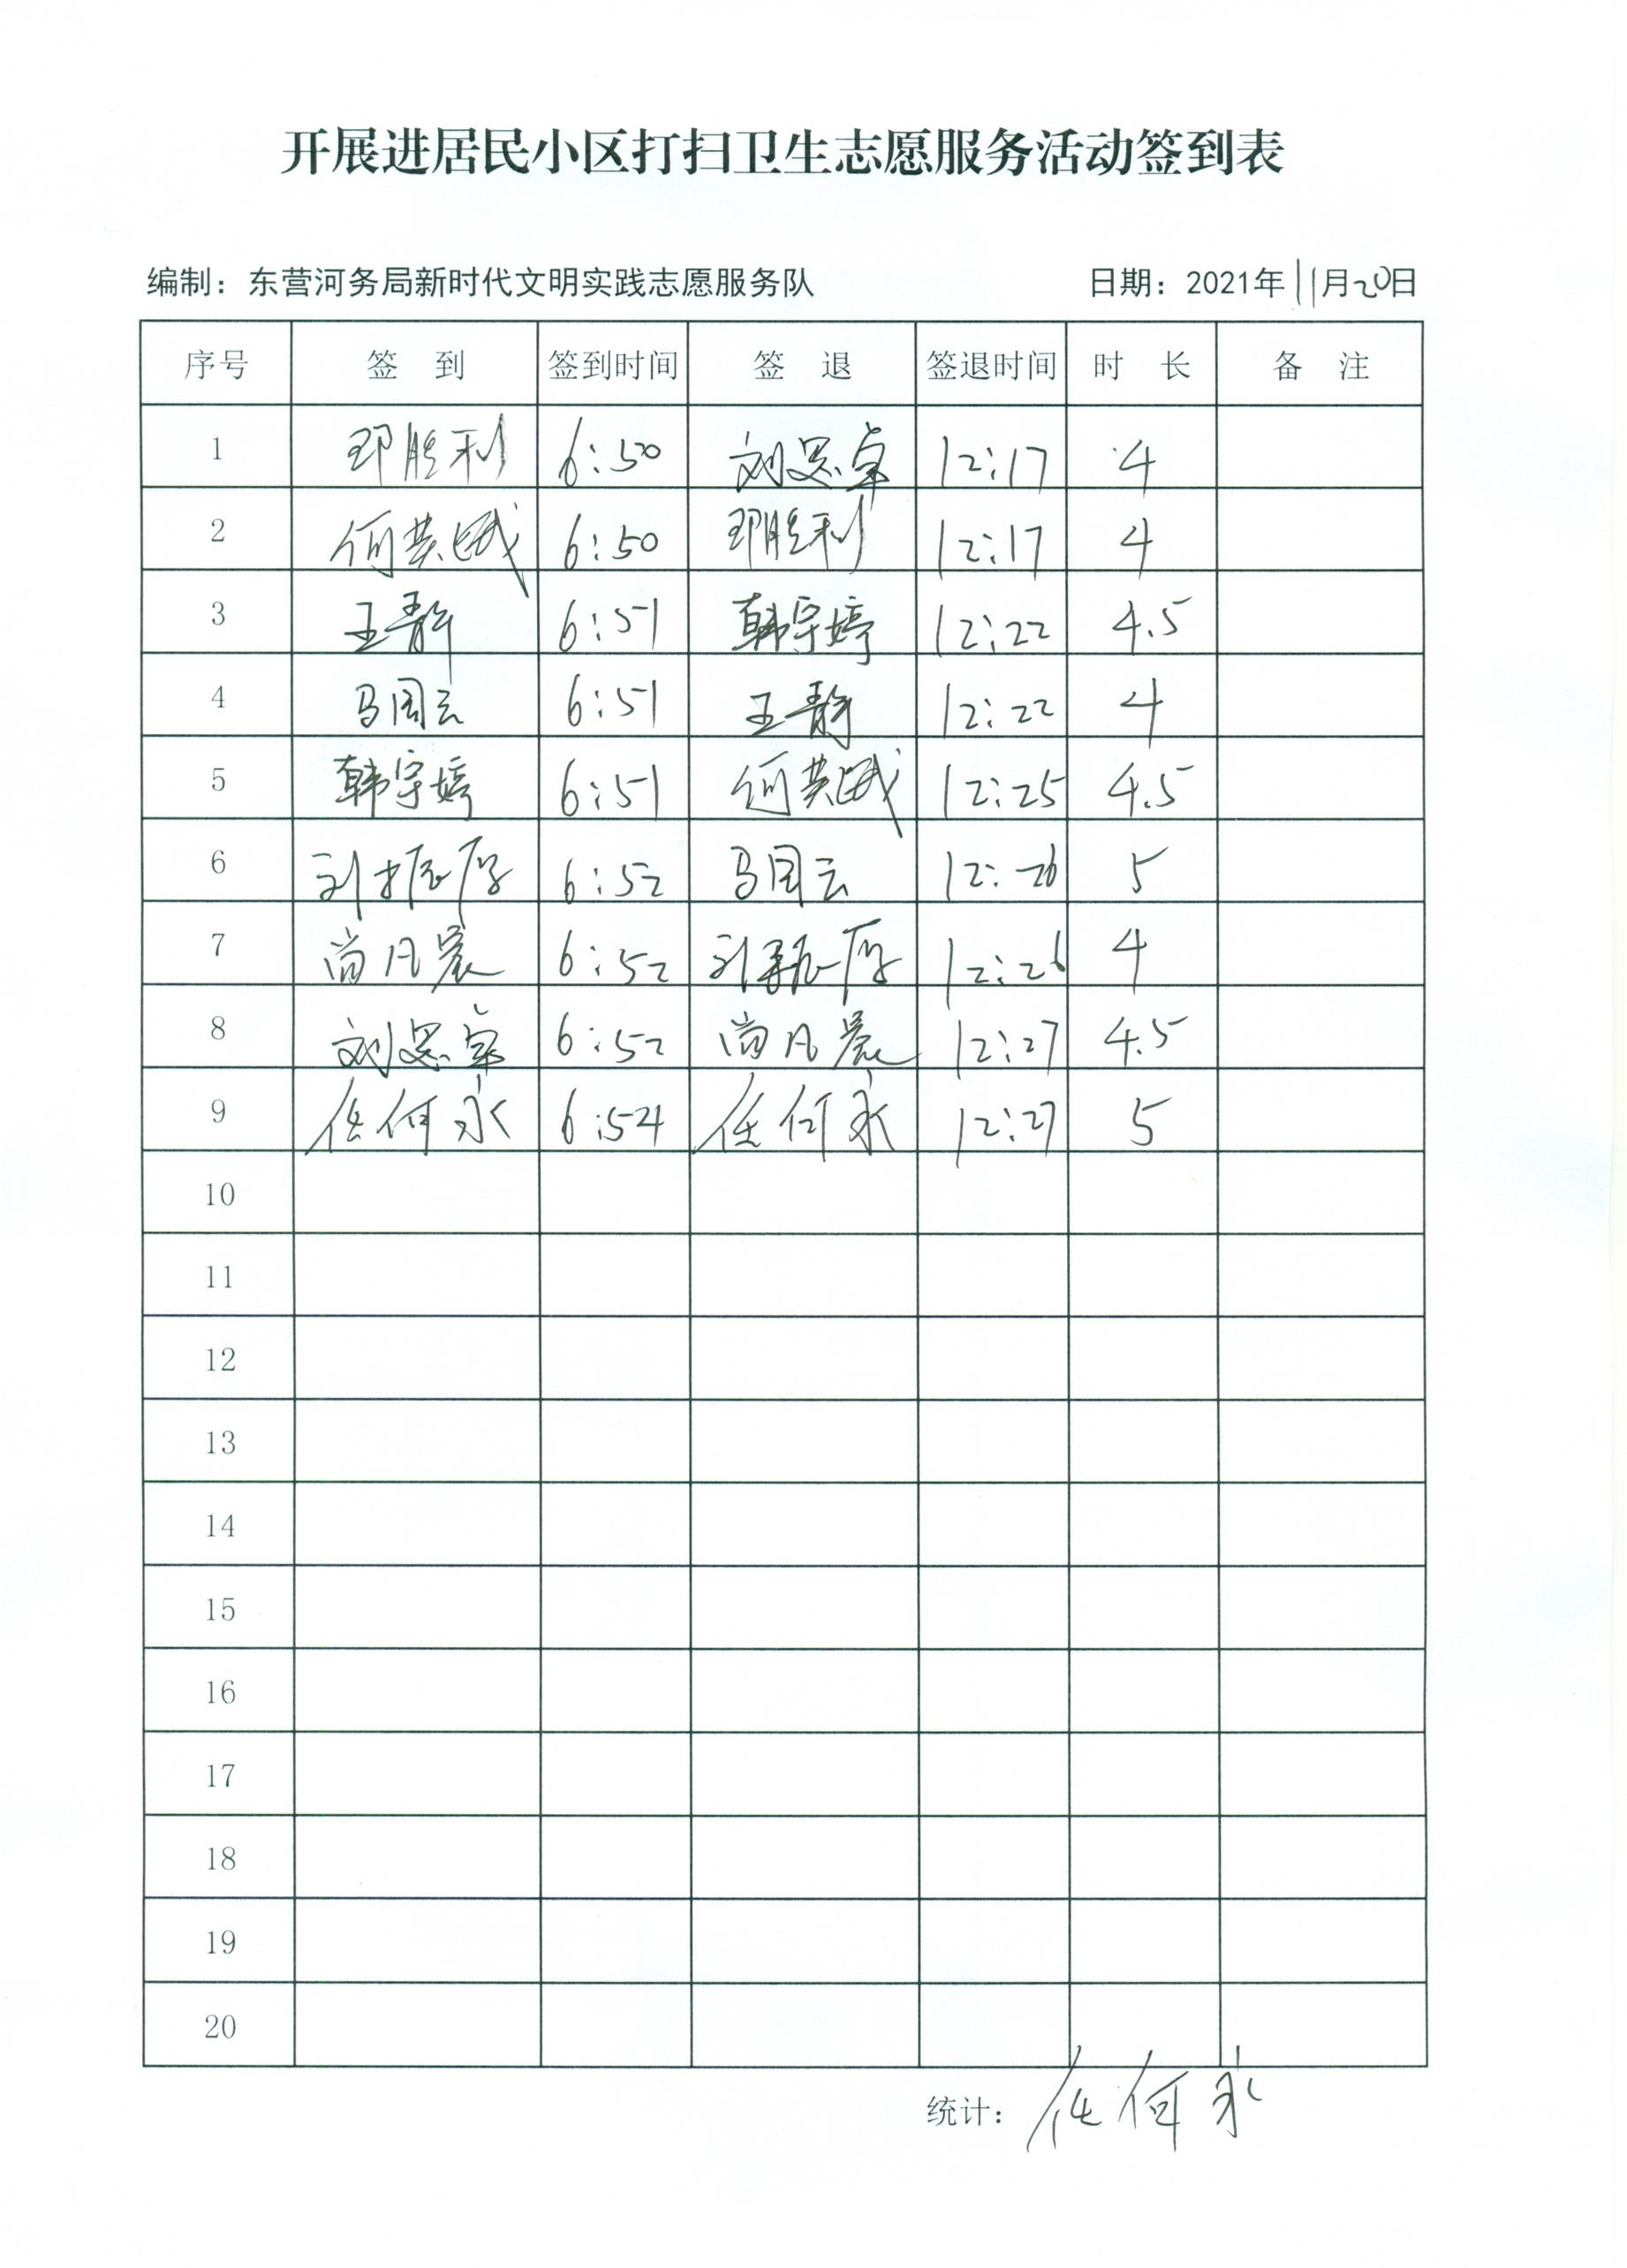 开展进居民小区打扫卫生志愿服务活动签到表
编制：东营河务局新时代文明实践志愿服务队 日期：2021年11月20日
序号 签 到 签到时间 签 退 签退时间 时 长 备 注
1 邓胜利 6:50 刘思卓 12:17 4
2 何英 6:50 邓胜利 12:17 4
3 王静 6:51 韩宇婷 12:22 4.5
4 马国云 6:51 王静 12:22 4
5 韩宇婷 6:51 何英 12:25 4.5
6 刘振厚 6:52 马国云 12:26 5
7 尚凡晨 6:52 刘振厚 12:26 4
8 刘思卓 6:52 尚凡晨 12:27 4.5
9 任何永 6:54 任何永 12:27 5
10
11
12
13
14
15
16
17
18
19
20
统计：任何永